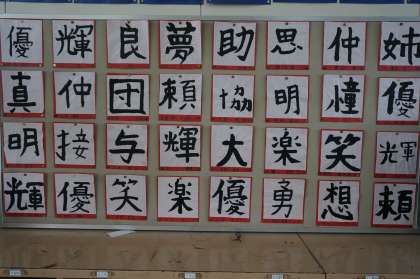 優 輝 良 夢 助 思 仲 姉
真 仲 団 頼 協 明 憧 優
明 接 与 輝 大 楽 笑 輝
輝 優 笑 楽 優 勇 想 頼